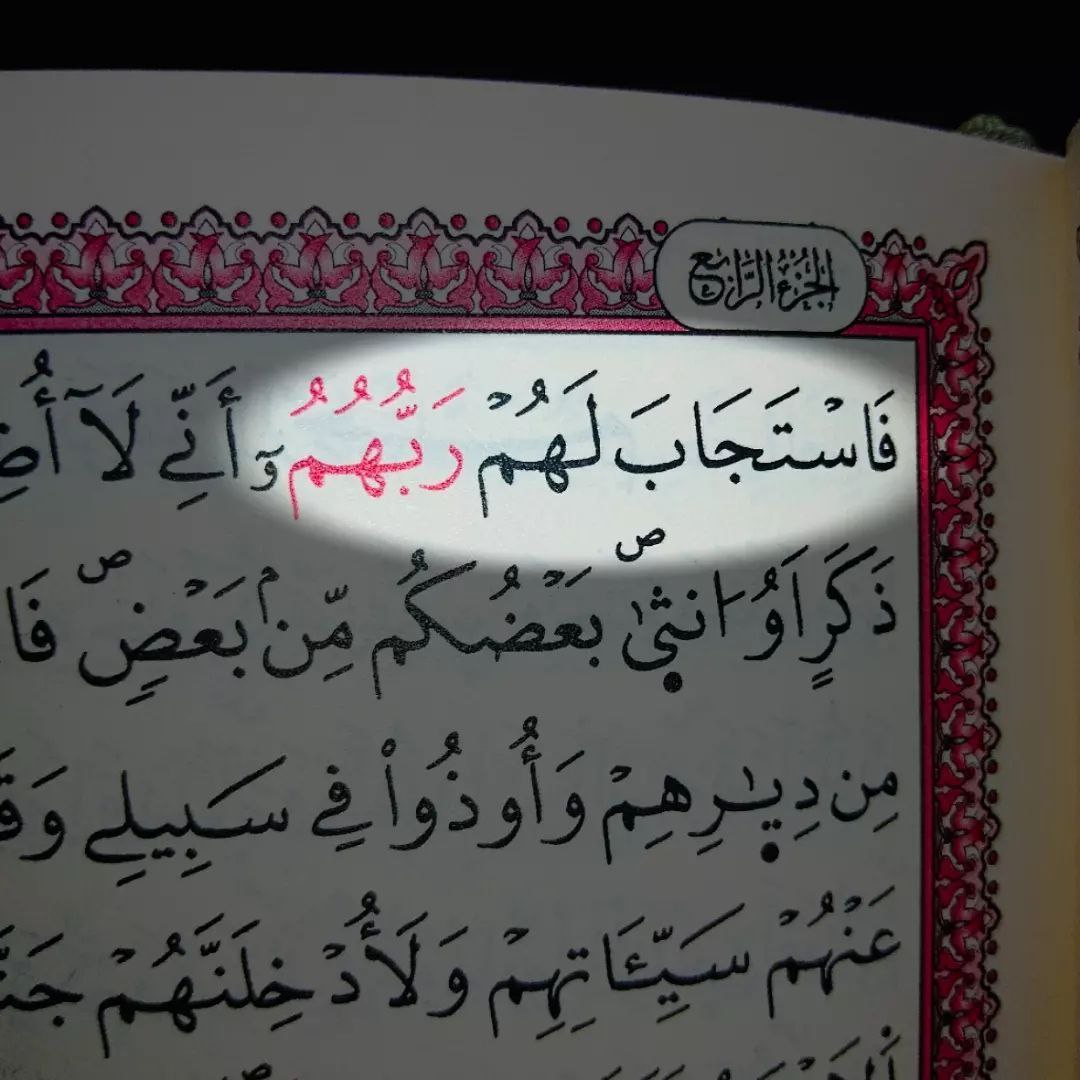 الجزء الرابع
فَاسْتَجَابَ لَهُمْ رَبُّهُمُۥٓ أَنِّے لَآ أُضِ
ذَكَرٍ اَوُ ا۟نث۪يٰۖ بَعْضُكُم مِّنۢ بَعْضٖۖ فَا
مِن دِيٰ۪رِهِمْ وَأُوذُواْ فِے سَبِيلِے وَقَ
عَنْهُمْ سَيِّـَٔاتِهِمْ وَلَأُدْخِلَنَّهُمْ جَنَّ